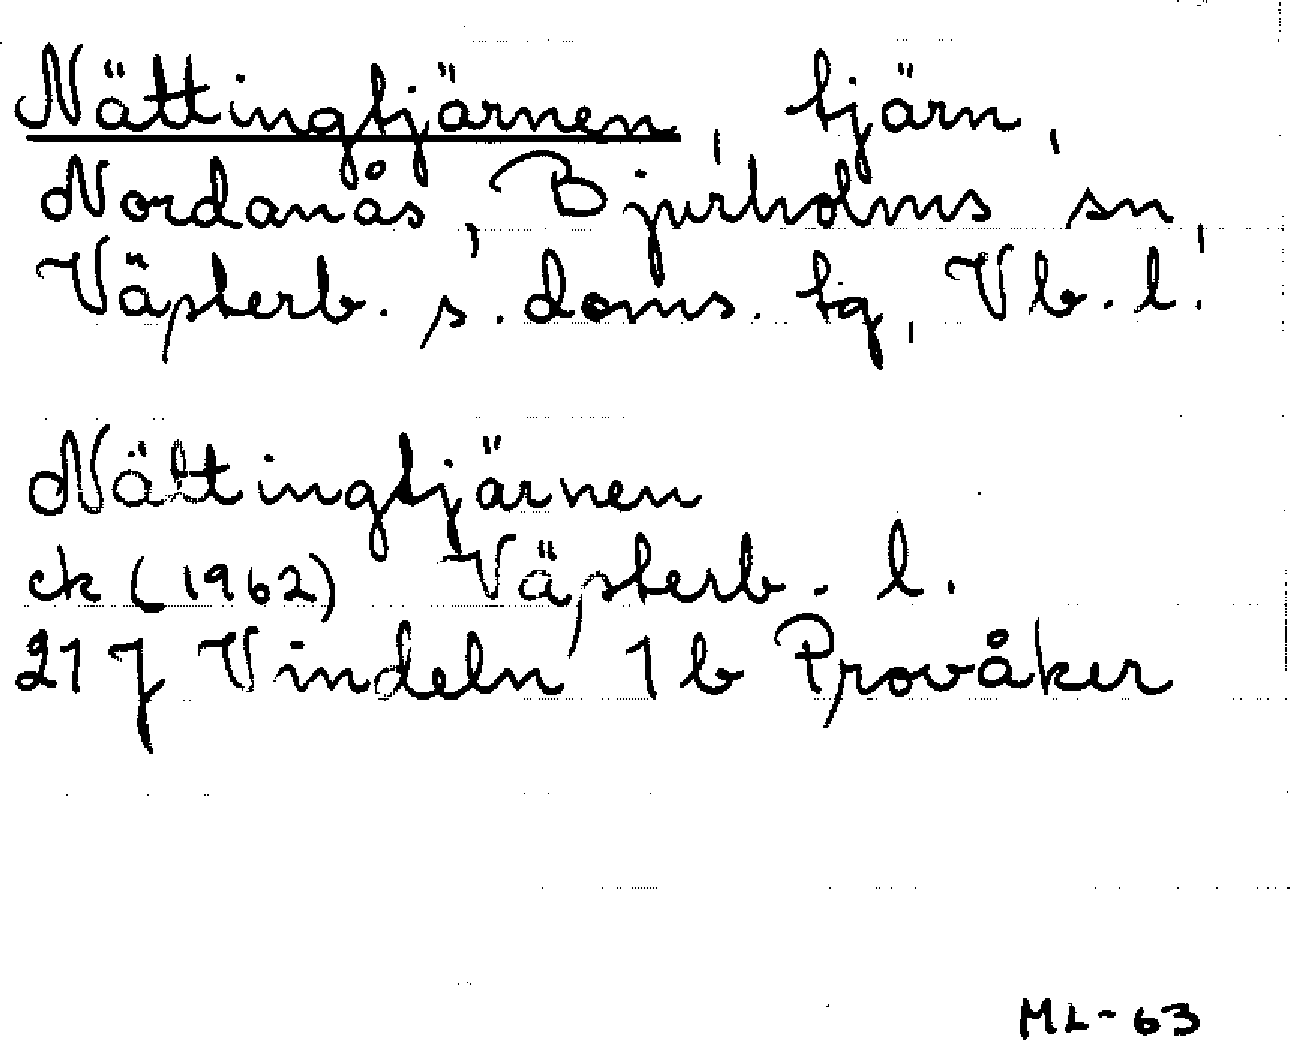 Nättingtjärnen, tjärn,
Nordanås, Bjurholms sn,
Västerb. s. doms. tg, Vb. l.
Nättingtjärnen
ek (1962) Västerb. l.
21 J Vindeln 1 b Provåker
ML-63